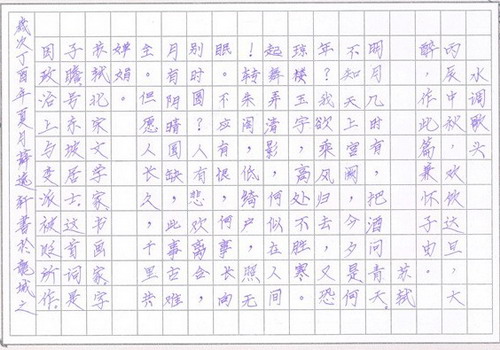 水调歌头
丙辰中秋，欢饮达旦，大
醉，作此篇，兼怀子由。苏轼
明月几时有，把酒问青天。
不知天上宫阙，今夕是何
年？我欲乘风归去，又恐
琼楼玉宇，高处不胜寒。
起舞弄清影，何似在人间
！转朱阁，低绮户，照无
眠。不应有恨，何事长向
别时圆？人有悲欢离合，
月有阴晴圆缺，此事古难
全。但愿人长久，千里共
婵娟。
轼北宋文学家书画家。字
子瞻号东坡居士。这首词是
因政治上与变法派被贬所作。
岁次丁酉年夏月薛书於龙城之